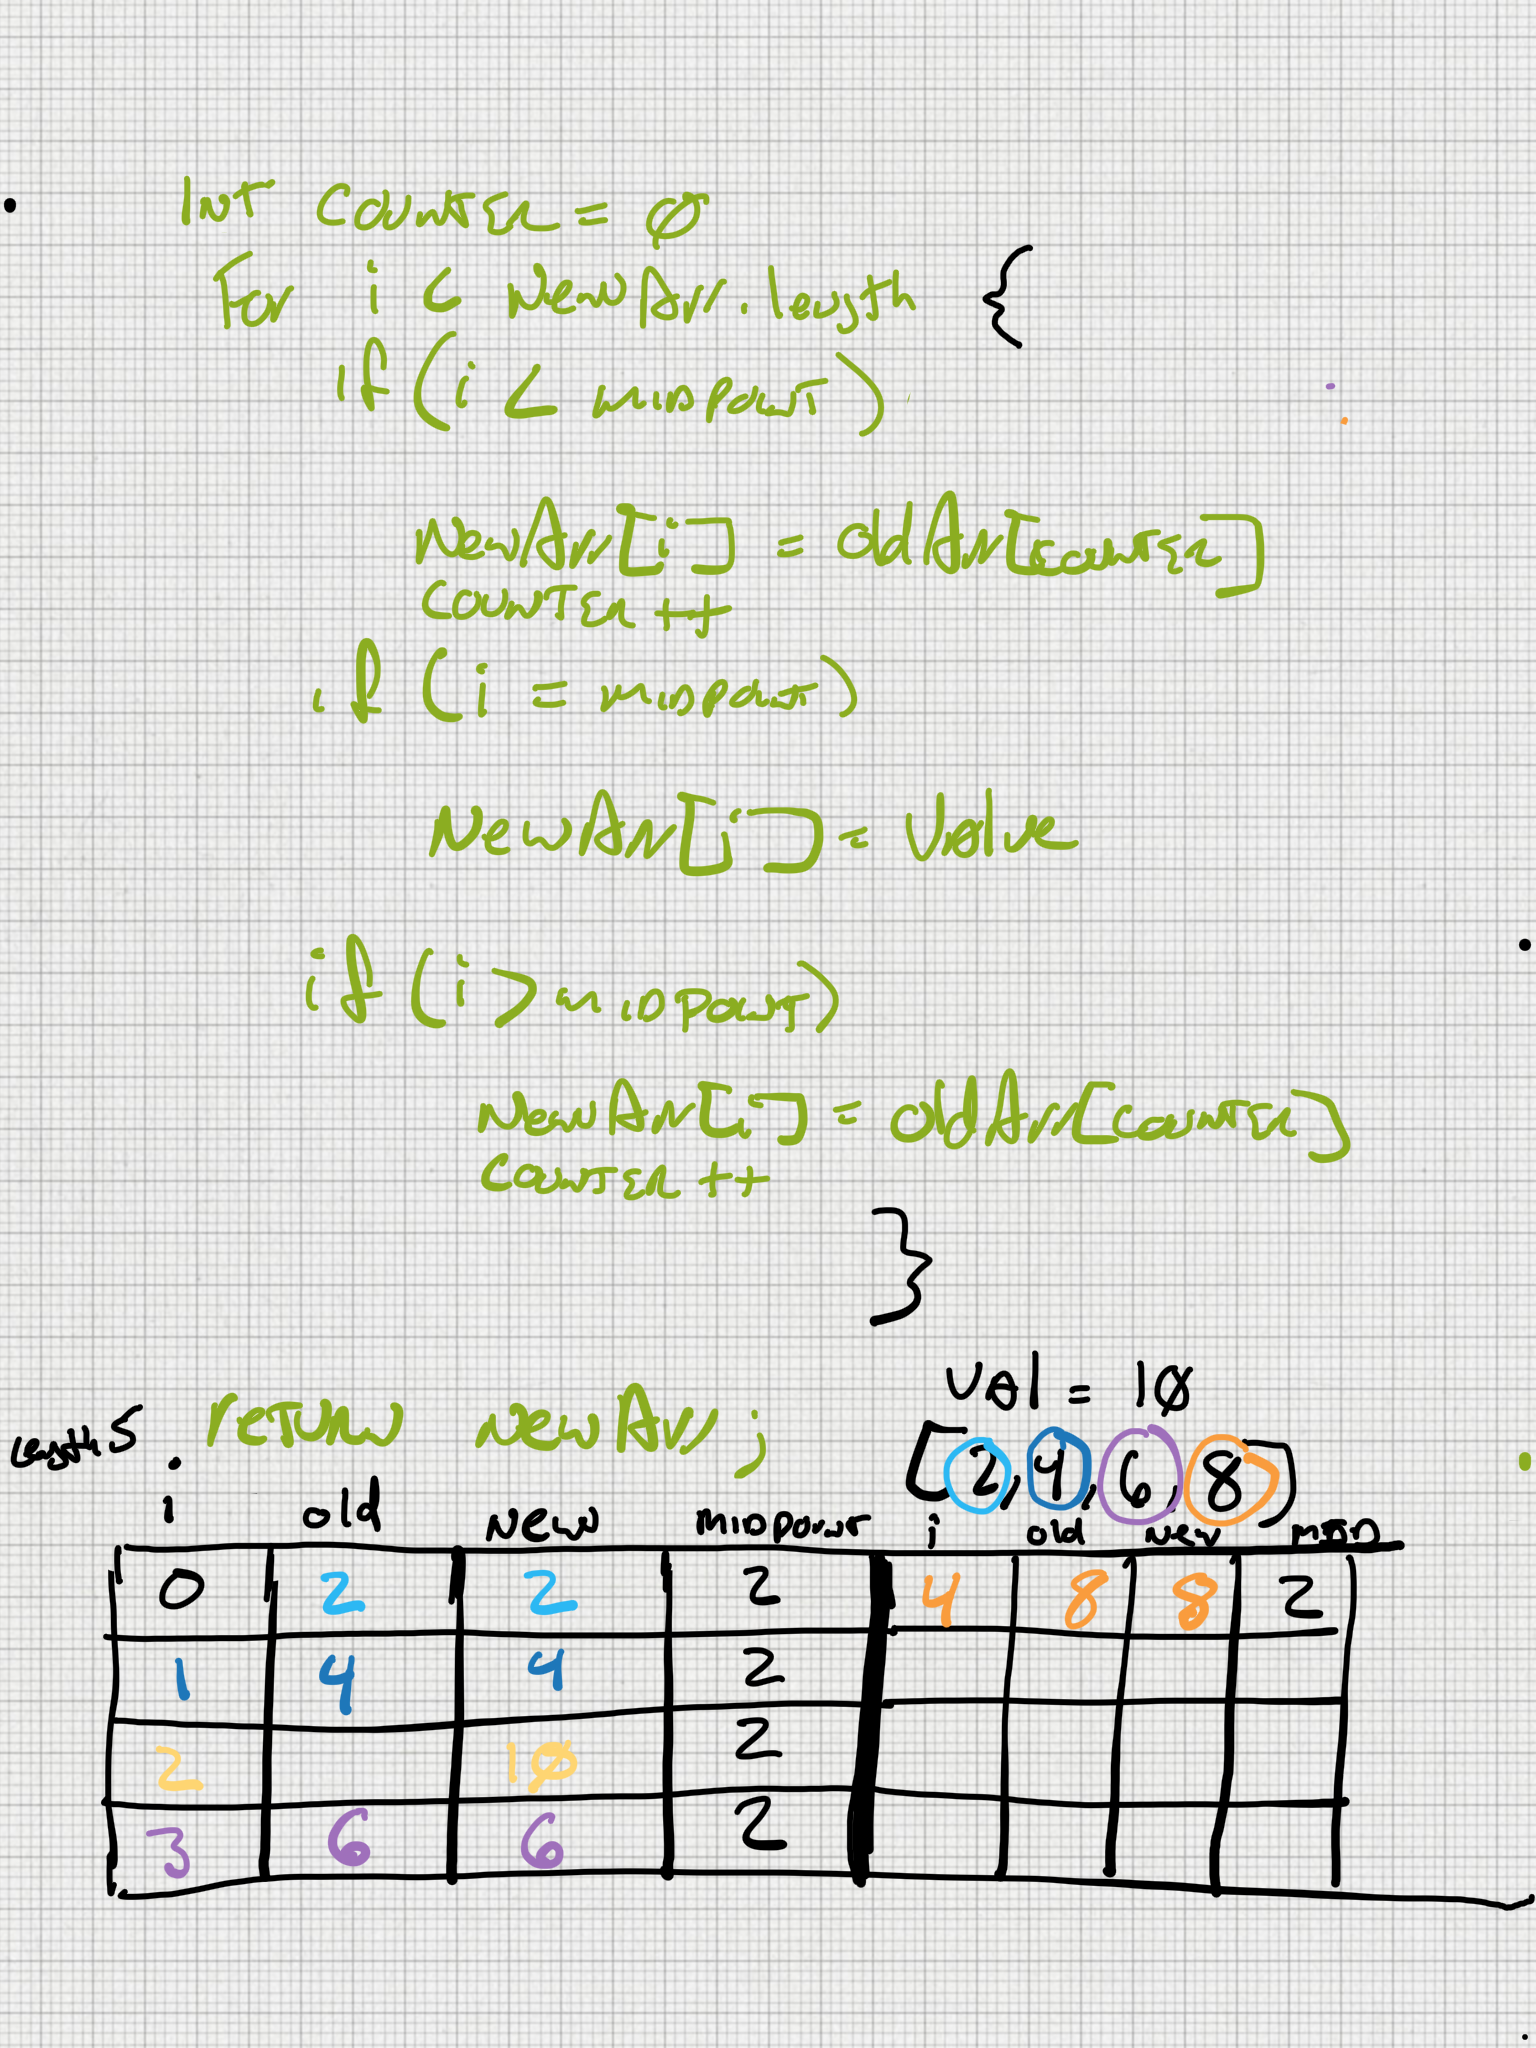 INT COUNTER = 0
For i < NewArr.length {
if (i < MIDPOINT)
NewArr[i] = oldArr[COUNTER]
COUNTER ++
if (i = MIDPOINT)
NewArr[i] = Value
if (i > MIDPOINT)
NewArr[i] = oldArr[COUNTER]
COUNTER ++
}
Val = 10
Length 5. return NewArr;
[2, 4, 6, 8]
i old New MIDPOINT i old New MID
0 2 2 2 4 8 8 2
1 4 4 2
2 10 2
3 6 6 2